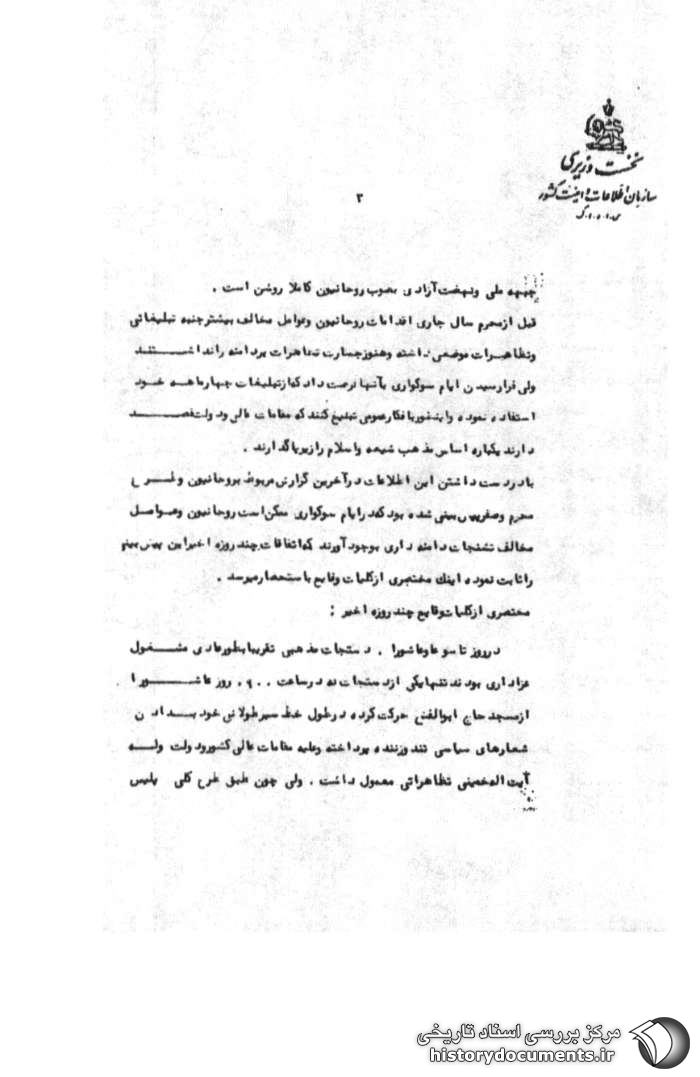 نخست وزیری
سازمان اطلاعات و امنیت کشور
س.ا.و.ا.ک
۳
جبهه ملی ونهضت آزادی بصوب روحانیون کاملا روشن است .
قبل ازمحرم سال جاری اقدامات روحانیون وعوامل مخالف بیشترجنبه تبلیغاتی
وتظاهرات موضعی داشته وهنوزجسارت تظاهرات پردامنه راند اشتند
ولی فرارسیدن ایام سوگواری بآنها فرصت داد که ازتبلیغات چهارماهه خود
استفاده نموده واینطوربافکارعمومی تبلیغ کنند که مقامات عالی ودولت قصد
دارند یکباره اساس مذهب شیعه واسلام رازیرپاگذارند .
بادردست داشتن این اطلاعات درآخرین گزارش مربوط بروحانیون وطرح
محرم وصفرپیش بینی شده بود که درایام سوگواری ممکن است روحانیون وعوامل
مخالف تشنجات دامنه داری بوجود آورند که اتفاقات چند روزه اخیراین پیش بینی
راثابت نموده اینك مختصری ازکلیات وقایع باستحضارمیرسد .
مختصری ازکلیات وقایع چند روزه اخیر :
درروز تاسوعاوعاشورا . دستجات مذهبی تقریبا بطورعادی مشغول
عزاداری بودند تنها یکی ازدستجات که درساعت ۰۹۰۰ روز عاشورا
ازمسجد حاج ابوالفتح حرکت کرده درطول خط سیرطولانی خود بدادن
شعارهای سیاسی تند وزننده پرداخته وعلیه مقامات عالی کشورودولت وله
آیت اله خمینی تظاهراتی معمول داشت . ولی چون طبق طرح کلی پلیس
مرکز بررسی اسناد تاریخی
historydocuments.ir